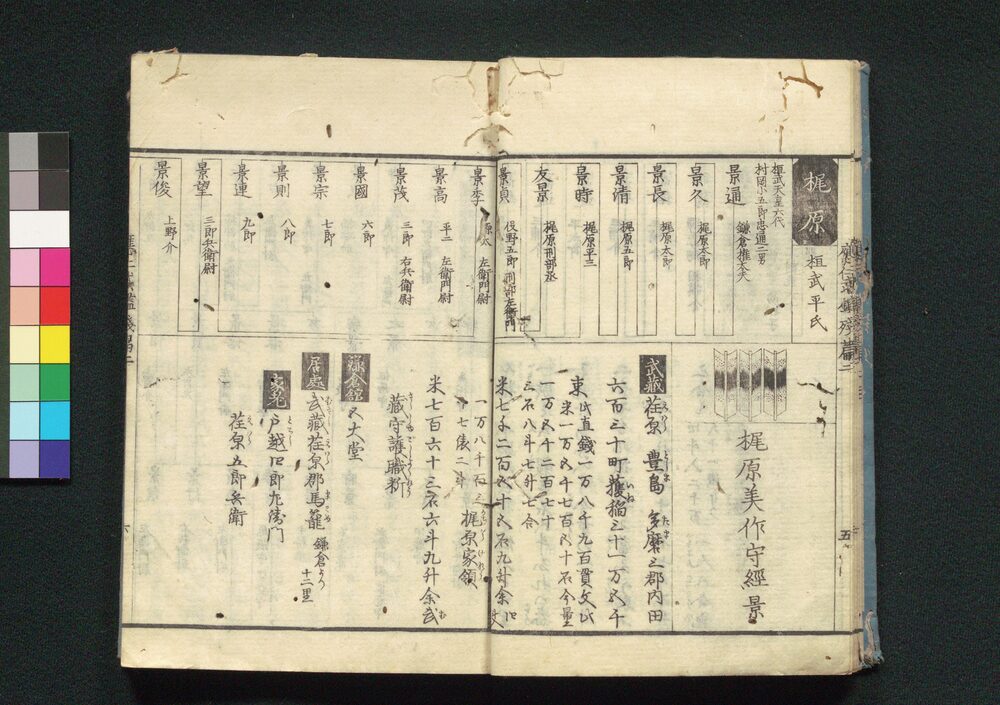 梶原
桓武平氏
桓武天皇六代
村岡小五郎忠通二男
景通
鎌倉権太夫
景久
梶原太郎
景長
梶原太郎
景清
梶原五郎
景時
梶原平三
友景
梶原刑部丞
景貞
役野五郎 刑部左衛門
景季
源太 左衛門尉
景高
平二 左衛門尉
景茂
三郎 右兵衛尉
景國
六郎
景宗
七郎
景則
八郎
景連
九郎
景望
三郎兵衛尉
景俊
上野介
梶原美作守經景
武蔵 荏原 豊島 多磨三郡内田
六百三十町獲稲三十一万五千
束 此直錢一万八千九百貫文此
米一万五千七百五十石今量
一万五千二百七十
三石八斗七升七合
米七千二百五十五石九升余
一万八千石
十七俵二斗 梶原家領
米七百六十三石六斗九升余武
蔵守護職料
鎌倉舘 五大堂
居處 武蔵荏原郡馬籠 鎌倉より十二里
家老 戸越四郎左衛門
荏原五郎兵衛
五